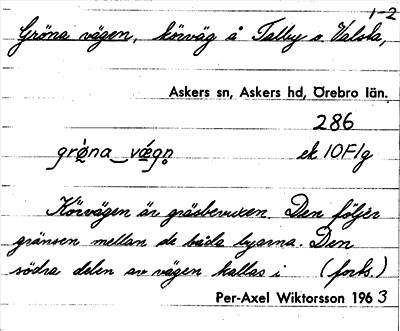 1-2
Gröna vägen, körväg å Talby o Valsta,
Askers sn, Askers hd, Örebro län.
286
grö̀na‿vǽgn̥ ek 10F1g
Körvägen är gräsbevuxen. Den följer
gränsen mellan de båda byarna. Den
södra delen av vägen kallas i (forts.)
Per-Axel Wiktorsson 1963